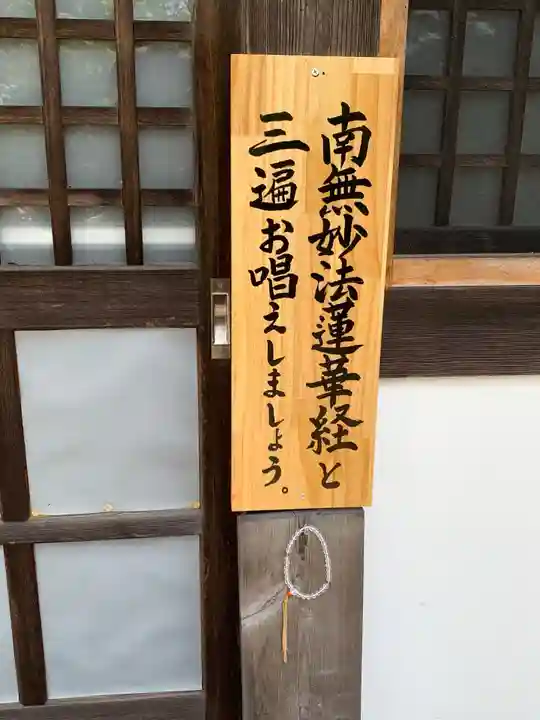 南無妙法蓮華経と
三遍お唱えしましょう。